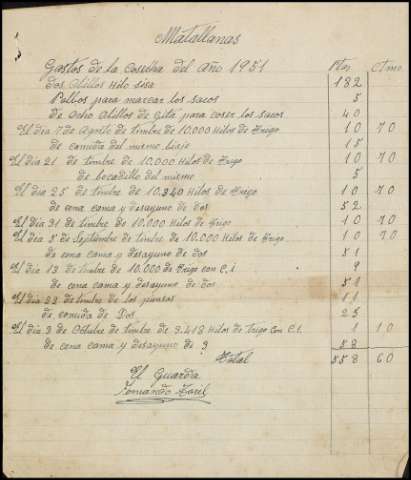 Matallanas
Gastos de la Cosecha del año 1951 Ptas. Ctmo.
Dos Obillos Hilo sisa 182
Polbos para marcar los sacos 5
de Ocho Obillos de Gita para coser los sacos 40
El dia 7 de Agosto de timbre de 10.000 Kilos de Trigo 10 70
de comida del mismo biaje 15
El dia 21 de timbre de 10.000 Kilos de Trigo 10 70
de bocadillo del mismo 5
El dia 25 de timbre de 10.340 Kilos de Trigo 10 70
de cena cama y desayuno de dos 52
El dia 31 de timbre de 10.000 Kilos de Trigo 10 70
El dia 5 de Septiembre de timbre de 10.000 Kilos de Trigo 10 70
de cena cama y desayuno de dos 51
El dia 13 de timbre de 10.000 de Trigo con C. i 9
de cena cama y desayuno de dos 51
El dia 23 timbre de los piensos 11
de comida de Dos 25
El dia 3 de Octubre de timbre de 9.418 Kilos de Trigo Con C.i. 1 10
de cena cama y desayuno de 3 58
Total 558 60
El Guarda
Fernando Toril